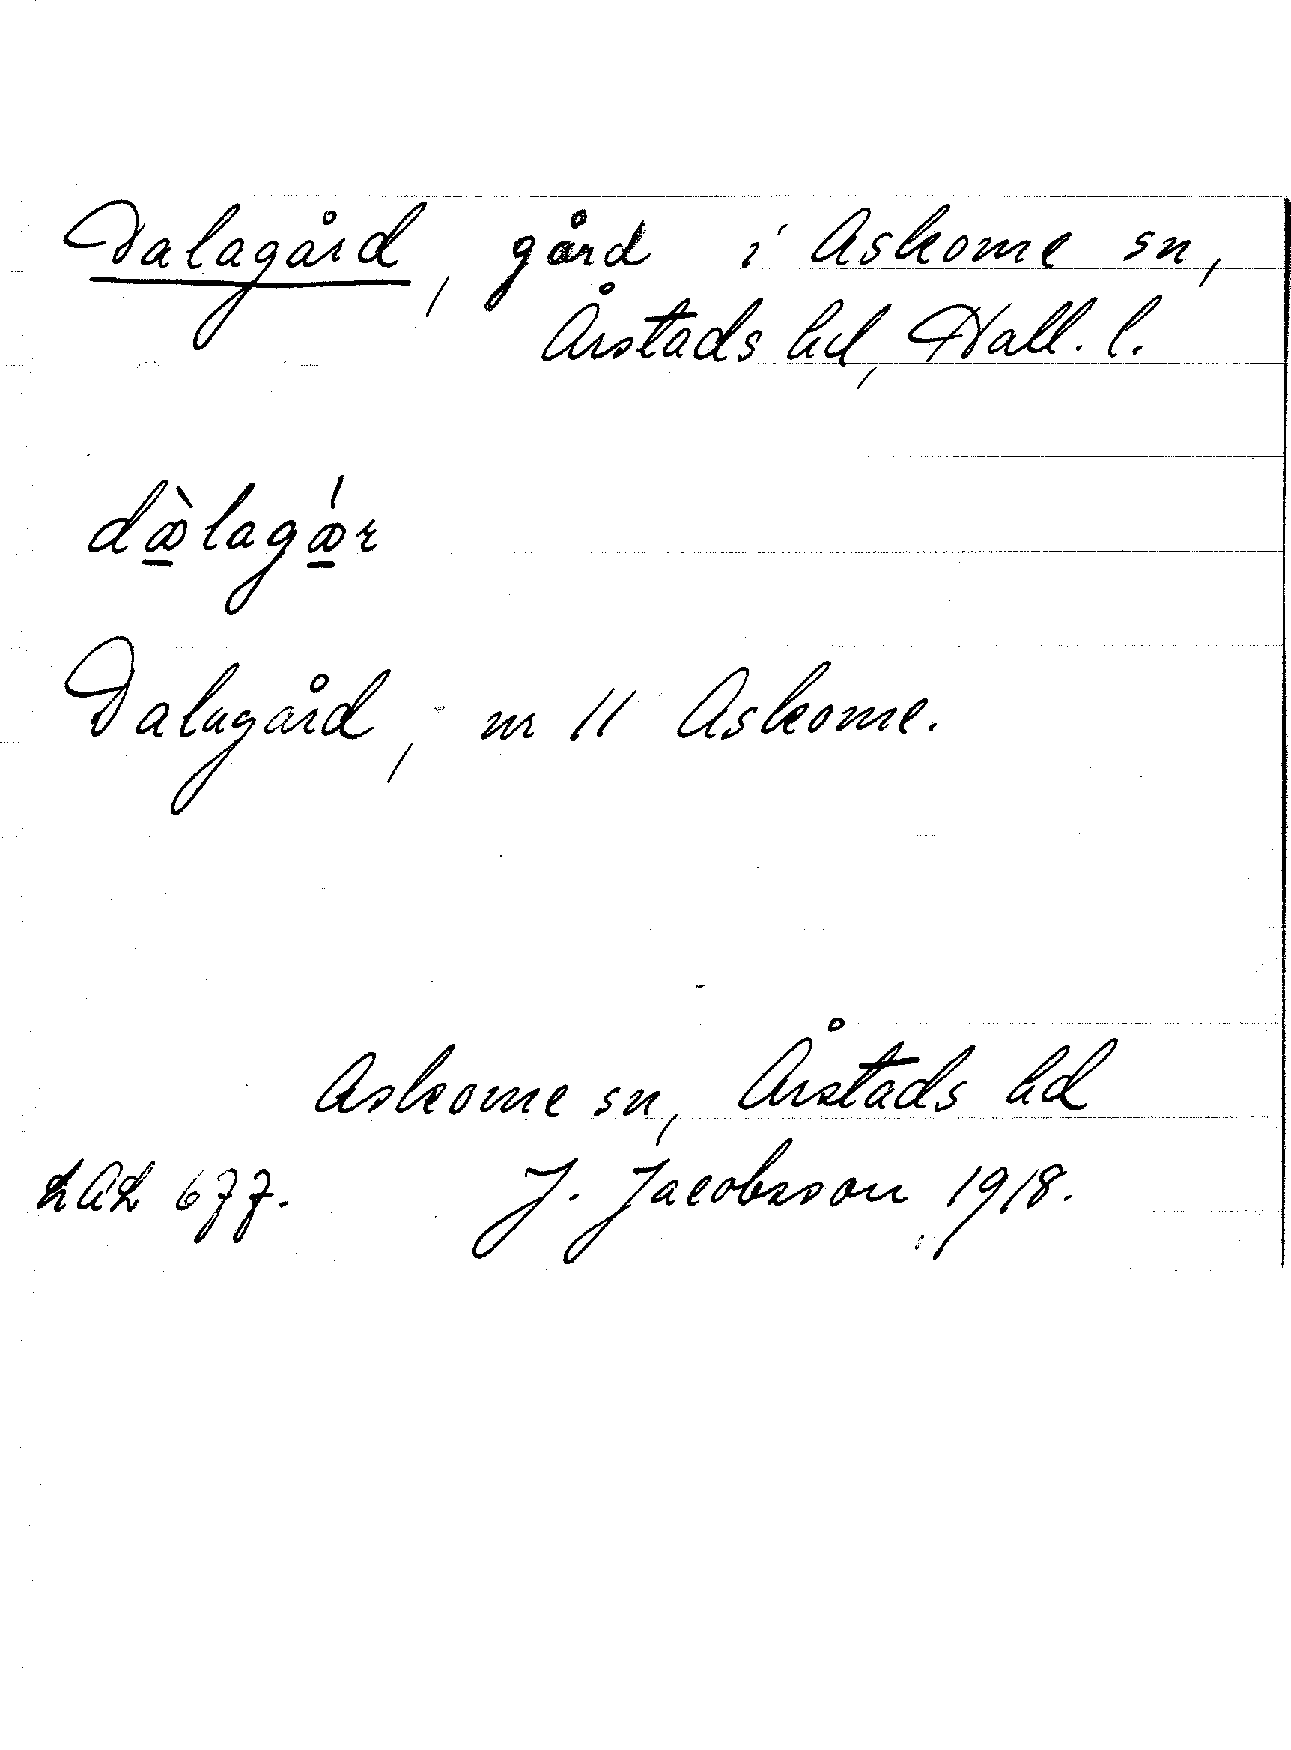 Dalagård, gård i Askome sn,
Årstads hd, Hall. l.
dæ̀lagǽr
Dalagård, nr 11 Askome.
Askome sn, Årstads hd
LAL 677. J. Jacobsson 1918.